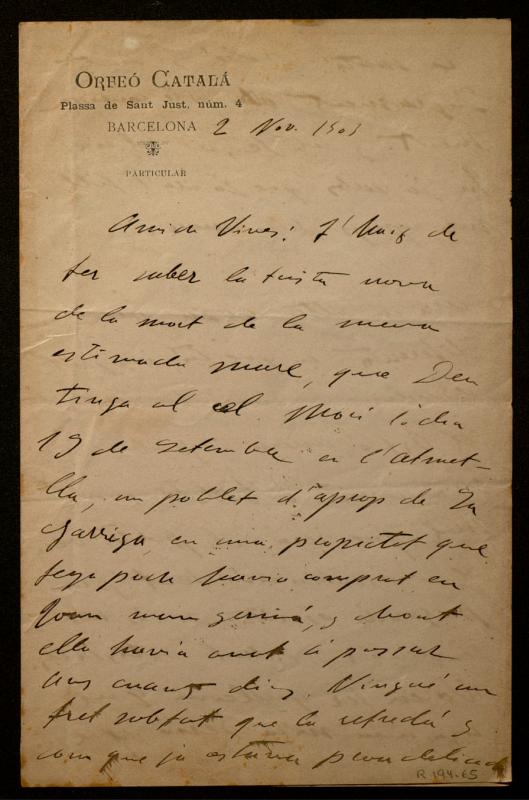 ORFEÓ CATALÁ
Plassa de Sant Just, núm. 4
BARCELONA 2 Nov. 1903
PARTICULAR
Amich Vives: T'haig de
fer saber la trista nova
de la mort de la meva
estimada mare, que Deu
tinga al cel. Morí lo dia
19 de Setembre a l'Atmet-
lla, un poblet d'aprop de La
Garriga, en una propietat que
feya poch havia comprat en
Joan mon germá, y ahont
ella havia anat á passar
uns quants dias. Vingué un
fret sobtat que la refredá y
com que ja estava prou delicada
R 194-65